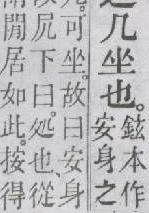 几坐也。鉉本作
安身之
可坐。故曰安身
凥下曰。処也、從
閒居如此。按得